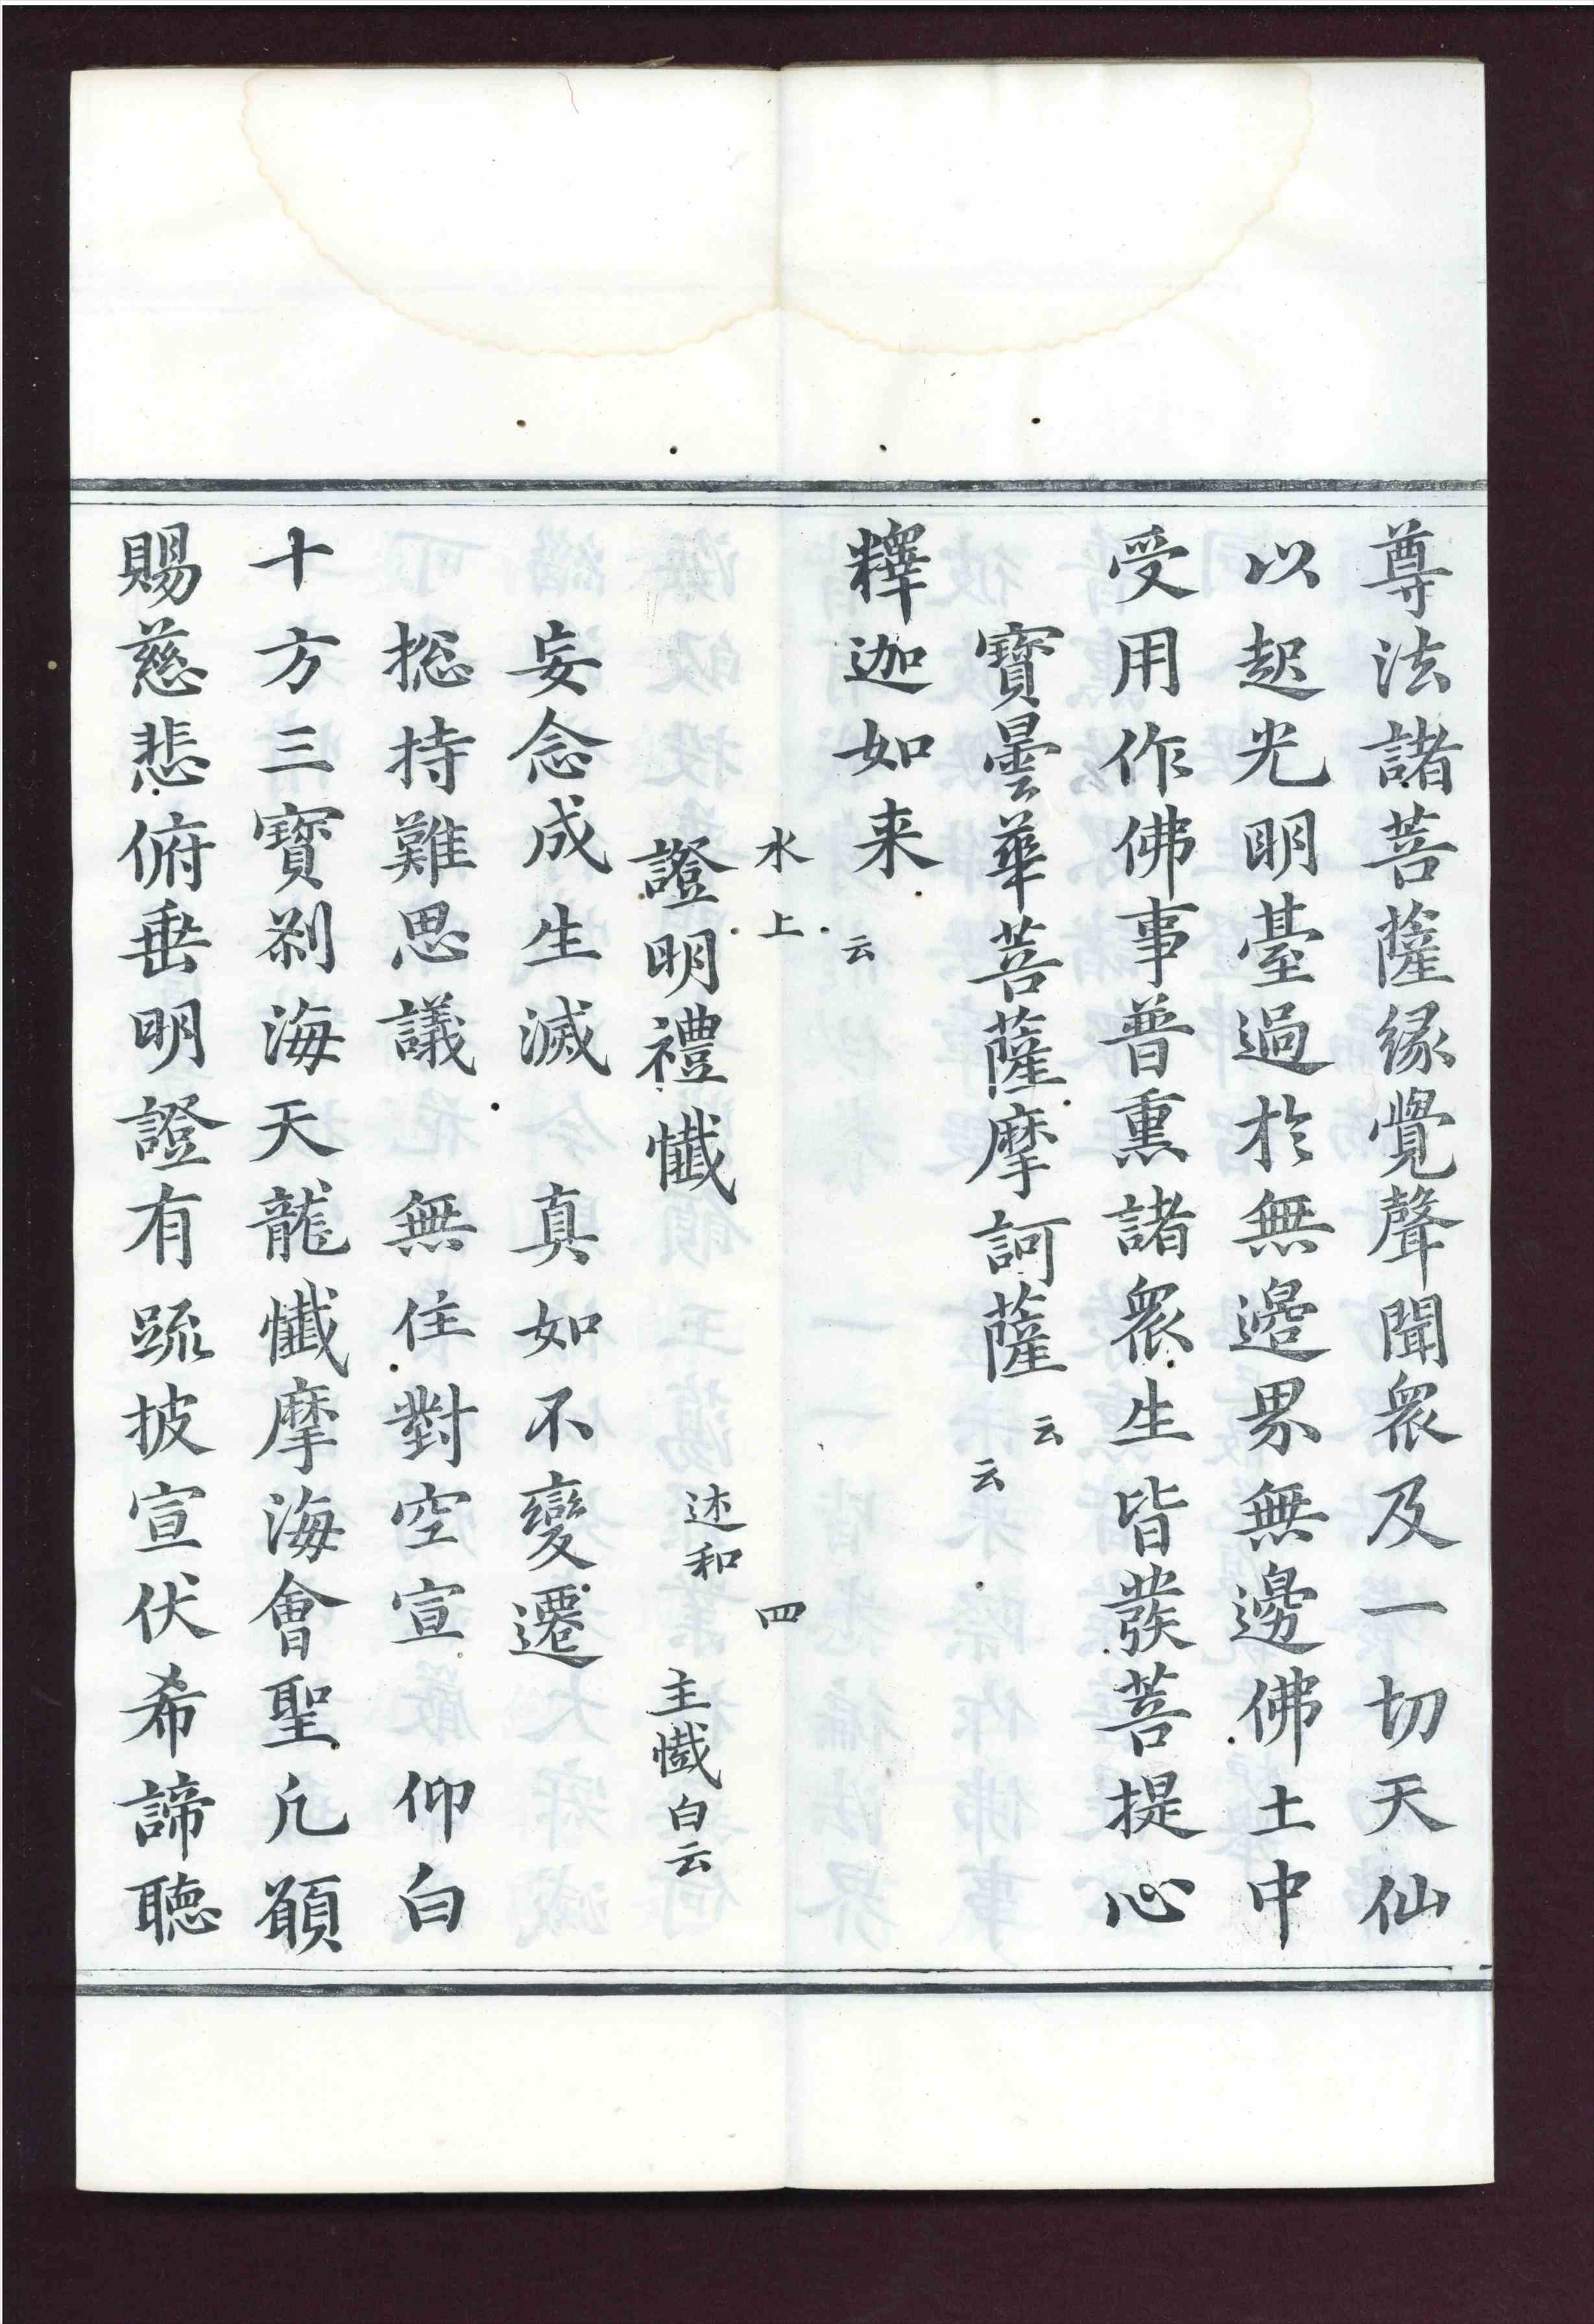 尊法諸菩薩縁覺聲聞衆及一切天仙
以起光明臺過於無邊界無邊佛土中
受用作佛事普熏諸衆生皆發菩提心
寶曇華菩薩摩訶薩 云云
釋迦如来 云
水上 四
證明禮懺 述和 主懺白云
妄念成生滅 真如不變遷
捴持難思議 無住對空宣 仰白
十方三寳刹海天龍懺摩海會聖凢願
賜慈悲俯垂明證有䟽披宣伏希諦聽